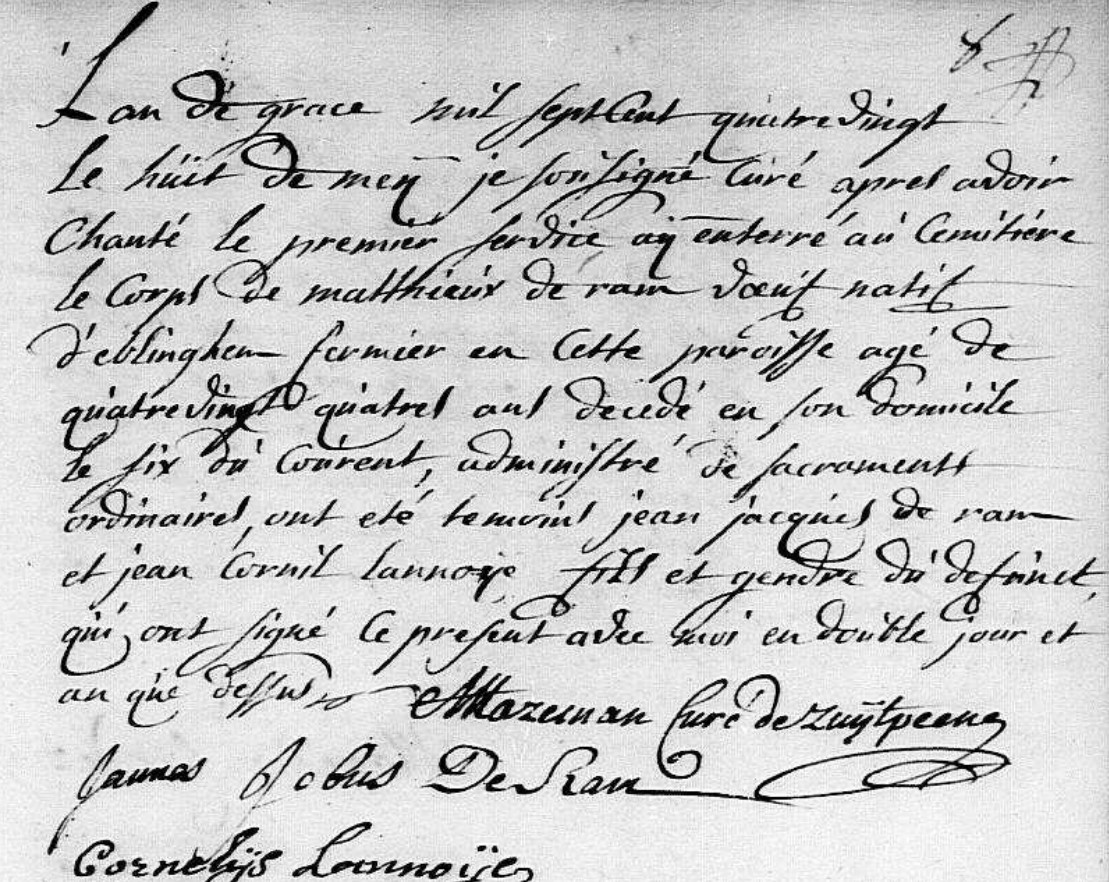 8
Lan de grace mil sept Cent quatre vingt
Le huit de mey je sousigné Curé apres avoir
Chanté le premier service aÿ enterré au Cemitiére
le Corps de matthieux de ram voeuf natif
d'eblinghem fermier en Cette paroisse agé de
quatre vingt quatres ans decedé en son domicile
le six du Courent, administré de sacraments
ordinaires, ont eté temoins jean jacques de ram
et jean Cornil Lannoÿe fils et gendre du defunct,
qui ont signé Ce present avec moi en double jour et
an que dessus Mazeman Curé de Zuÿtpeene
Jannes Jcbus De Ram
Cornelÿs Lannoÿe